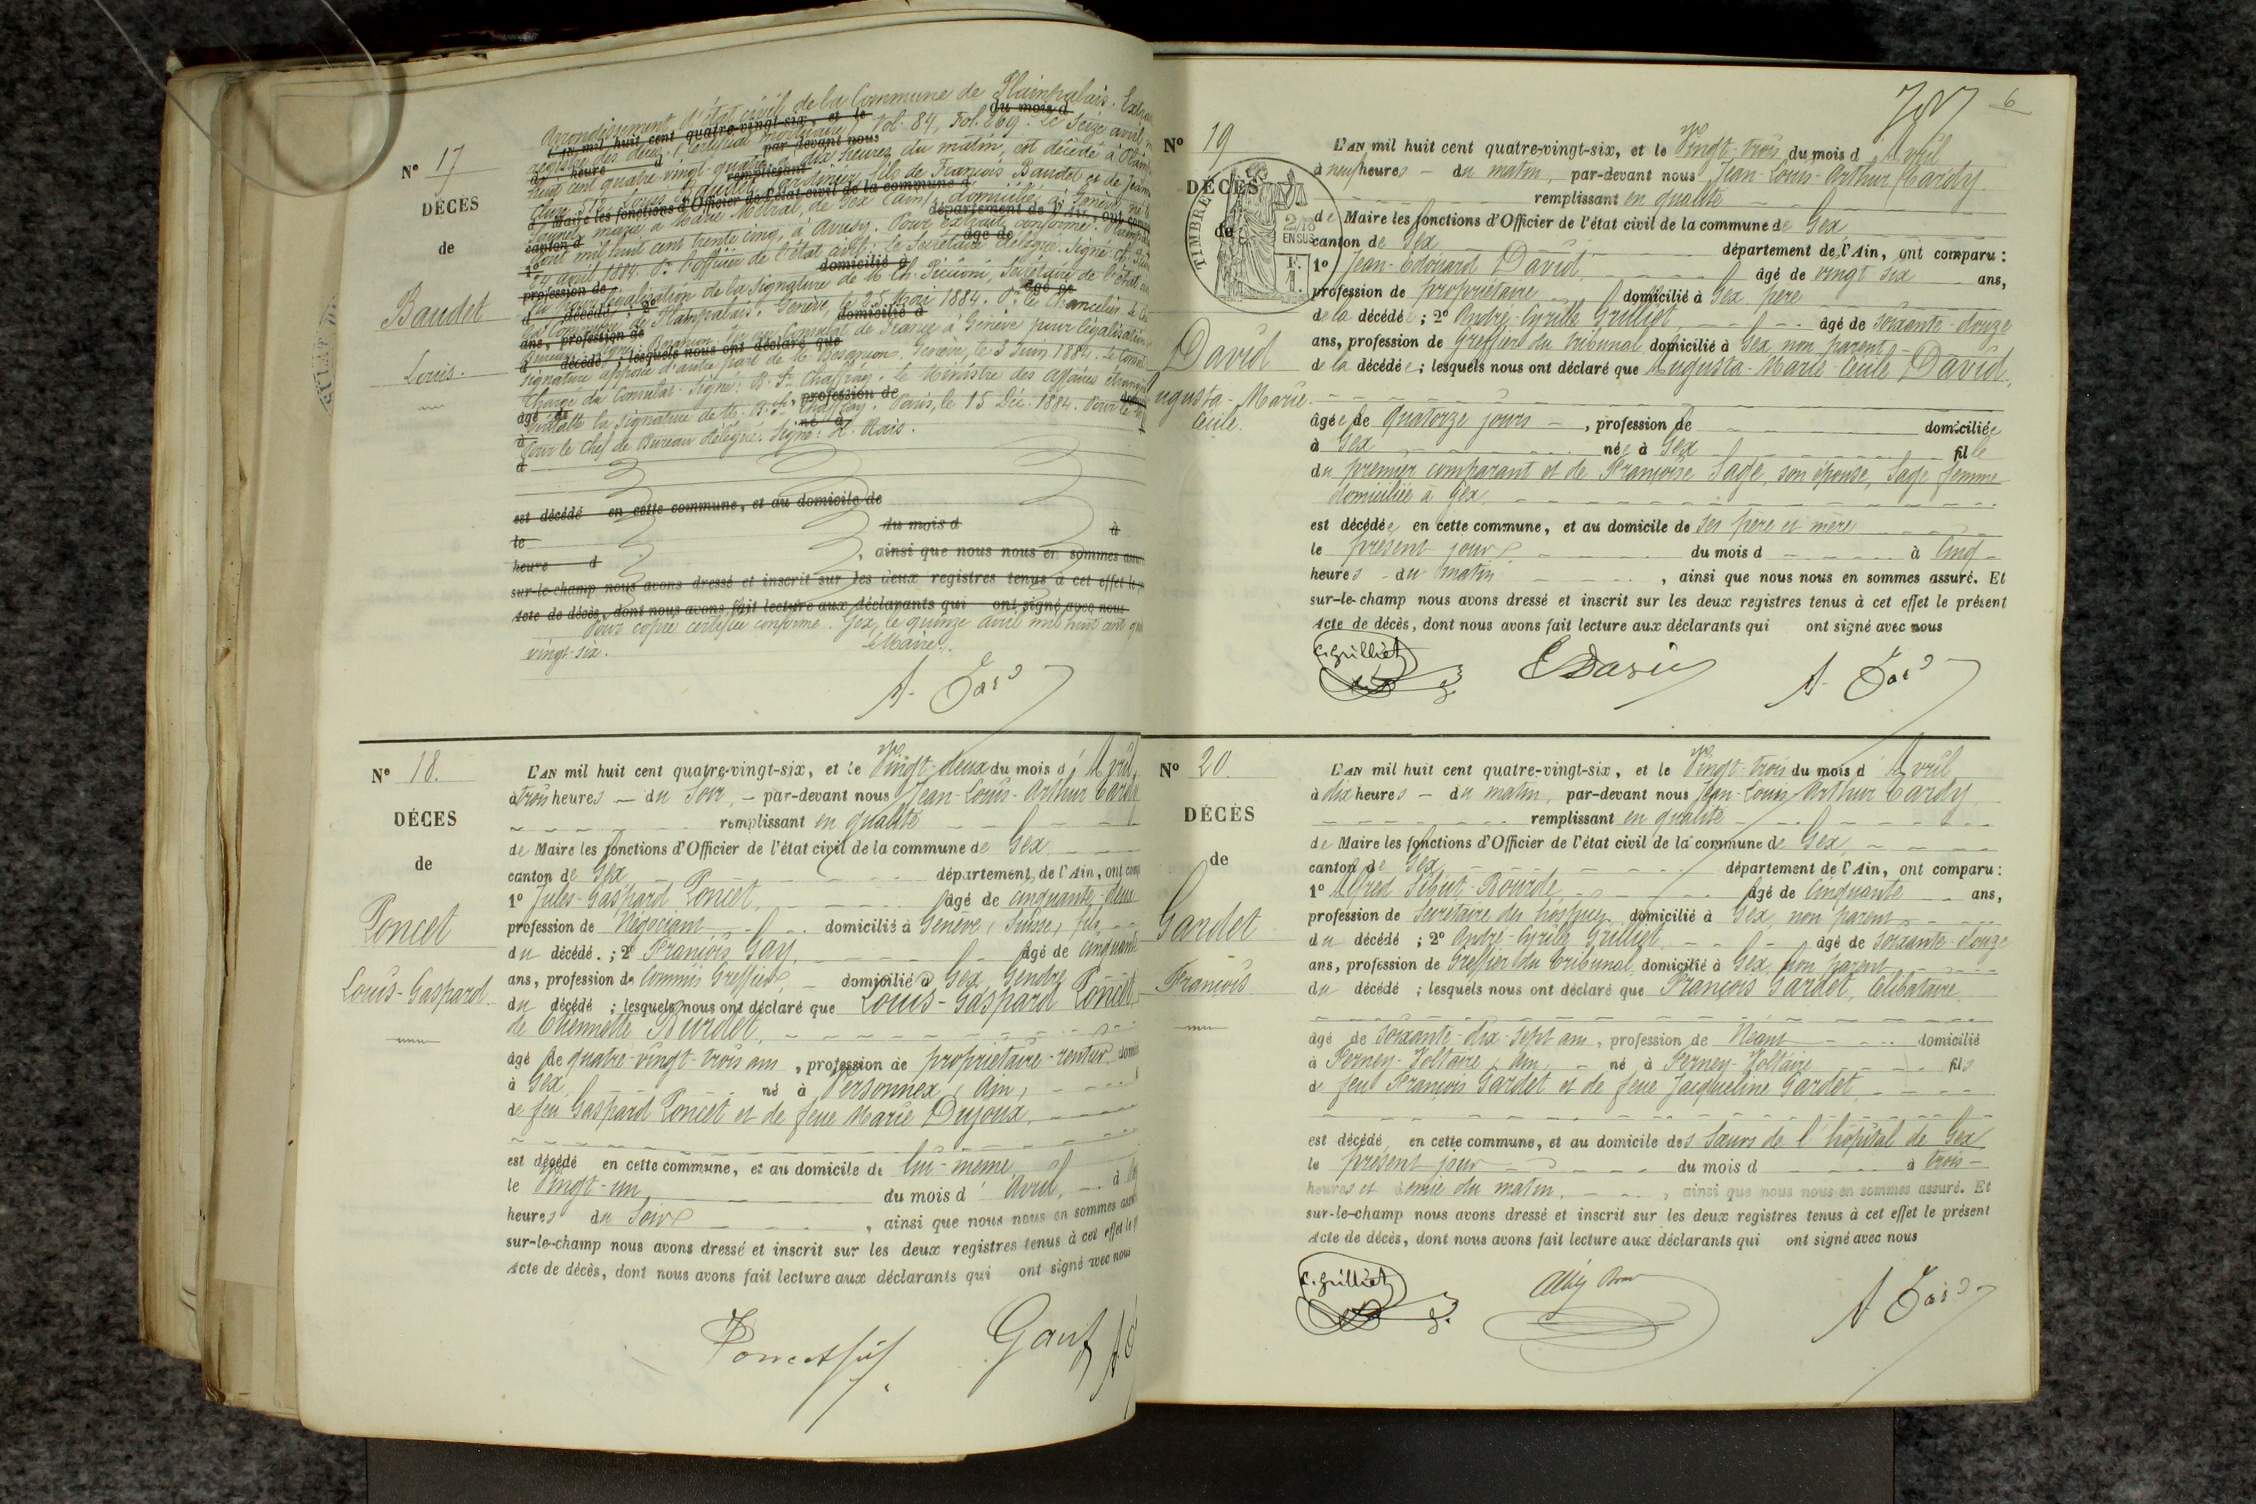 Nº 17
DÉCÈS
de
Baudet
Louis.
Arrondissement d'état civil de la Commune de Plainpalais.
L'an mil huit cent quatre-vingt-six, et le du mois d
registre des décès (Certificat mortuaire) Vol. 84, Fol. 269. Le Seize avril
heure d par devant nous
huit cent quatre vingt quatre, à dix heures du matin, est décédé à
remplissant
Louis Baudet, Jardinier, fils de François Baudet et de
d Maire les fonctions d'Officier de l'état civil de la commune d
mariée à Marie de Gex (Ain), domicilié à Genève, né
canton d département de l'Ain, ont comparu
mil huit cent trente cinq, à Avusy. Pour extrait conforme.
1º âgé de
avril 1884. Pr l'officier de l'état civil: Le Secrétaire délégué. Signé: Ch.
profession de domicilié à
légalisation de la signature de Mr Ch. Piccioni, Secrétaire de l'état
d décédé ; 2º âgé de
Plainpalais. Genève, le 25 Mai 1884. Pr le Chancelier.
ans, profession de domicilié à
Consulat de France à Genève pour légalisation
d décédé ; lesquels nous ont déclaré que
signature apposée d'autre part de Mr Genève, le 3 Juin 1884.
Chargé du Consulat. Signé: Le Ministre des affaires étrangères
âgé de , profession de
la signature de Mr Paris, le 15 Déc. 1884.
à né à
Pour le Chef de Bureau délégué. Signé:
d
est décédé en cette commune, et au domicile de
le du mois d à
heure d , ainsi que nous nous en sommes
sur-le-champ nous avons dressé et inscrit sur les deux registres tenus à cet effet le
Acte de décès, dont nous avons fait lecture aux déclarants qui ont signé avec nous
Pour copie certifiée conforme. Gex, le quinze avril mil huit cent
vingt-six.
Le Maire.
Nº 18.
DÉCES
de
Poncet
Louis-Gaspard.
L'AN mil huit cent quatre-vingt-six, et le Vingt-deux du mois d'Avril,
à trois heures du soir, par-devant nous Jean-Louis-Arthur Tardy
remplissant en qualité
de Maire les fonctions d'Officier de l'état civil de la commune de Gex
canton de Gex département de l'Ain, ont
1º Jules-Gaspard Poncet, âgé de cinquante-deux
profession de Négociant domicilié à Genève, Suisse, fils
du décédé. ; 2º François Gay, âgé de cinquante
ans, profession de Commis Greffier, domicilié à Gex, Gendre
du décédé ; lesquels nous ont déclaré que Louis-Gaspard Poncet
de Etiennette Burdet,
âgé de quatre-vingt-trois ans, profession de propriétaire-rentier
à Gex né à Versonnex, Ain,
de feu Gaspard Poncet et de feue Marie Dujoux,
est décédé en cette commune, et au domicile de lui-même
le Vingt-un, du mois d'Avril, à
heures du Soir , ainsi que nous nous en sommes
sur-le-champ nous avons dressé et inscrit sur les deux registres tenus à cet effet le
Acte de décès, dont nous avons fait lecture aux déclarants qui ont signé avec nous
Poncet fils
6
Nº 19
DÉCÈS
de
TIMBRE
2/10
EN SUS
David
Augusta-Marie
Cécile.
L'AN mil huit cent quatre-vingt-six, et le Vingt-trois du mois d'Avril
à neuf heures du matin, par-devant nous Jean-Louis-Arthur Tardy
remplissant en qualité
de Maire les fonctions d'Officier de l'état civil de la commune de Gex
canton de Gex département de l'Ain, ont comparu :
1º Jean-Edouard David âgé de vingt six ans,
profession de propriétaire domicilié à Gex père
de la décédée ; 2º André-Cyrille Grilliet, âgé de soixante-douze
ans, profession de Greffier du Tribunal domicilié à Gex, non parent
de la décédée ; lesquels nous ont déclaré que Augusta-Marie-Cécile David,
âgée de quatorze jours, profession de domiciliée
à Gex née à Gex fille
du premier comparant et de Françoise Sage, son épouse, Sage femme
domiciliée à Gex
est décédée en cette commune, et au domicile de ses père et mère
le présent jour du mois d à Cinq
heures du matin , ainsi que nous nous en sommes assuré. Et
sur-le-champ nous avons dressé et inscrit sur les deux registres tenus à cet effet le présent
Acte de décès, dont nous avons fait lecture aux déclarants qui ont signé avec nous
C. Grilliet
Nº 20.
DÉCÈS
de
Gardet
François
L'AN mil huit cent quatre-vingt-six, et le Vingt-trois du mois d'Avril
à dix heures du matin, par-devant nous Jean-Louis Arthur Tardy
remplissant en qualité
de Maire les fonctions d'Officier de l'état civil de la commune de Gex
canton de Gex département de l'Ain, ont comparu :
1º Alfred Bourde âgé de Cinquante ans,
profession de Secrétaire des hospices domicilié à Gex, non parent
du décédé ; 2º André-Cyrille Grilliet âgé de soixante-douze
ans, profession de Greffier du Tribunal, domicilié à Gex non parent
du décédé ; lesquels nous ont déclaré que François Gardet, Célibataire
âgé de soixante-dix-sept ans, profession de Néant domicilié
à Ferney-Voltaire, Ain, né à Ferney-Voltaire fils
de feu François Gardet et de feue Jacqueline Gardet
est décédé en cette commune, et au domicile des Sœurs de l'hôpital de Gex
le présent jour du mois d à trois
heures et demie du matin , ainsi que nous nous en sommes assuré. Et
sur-le-champ nous avons dressé et inscrit sur les deux registres tenus à cet effet le présent
Acte de décès, dont nous avons fait lecture aux déclarants qui ont signé avec nous
C. Grilliet